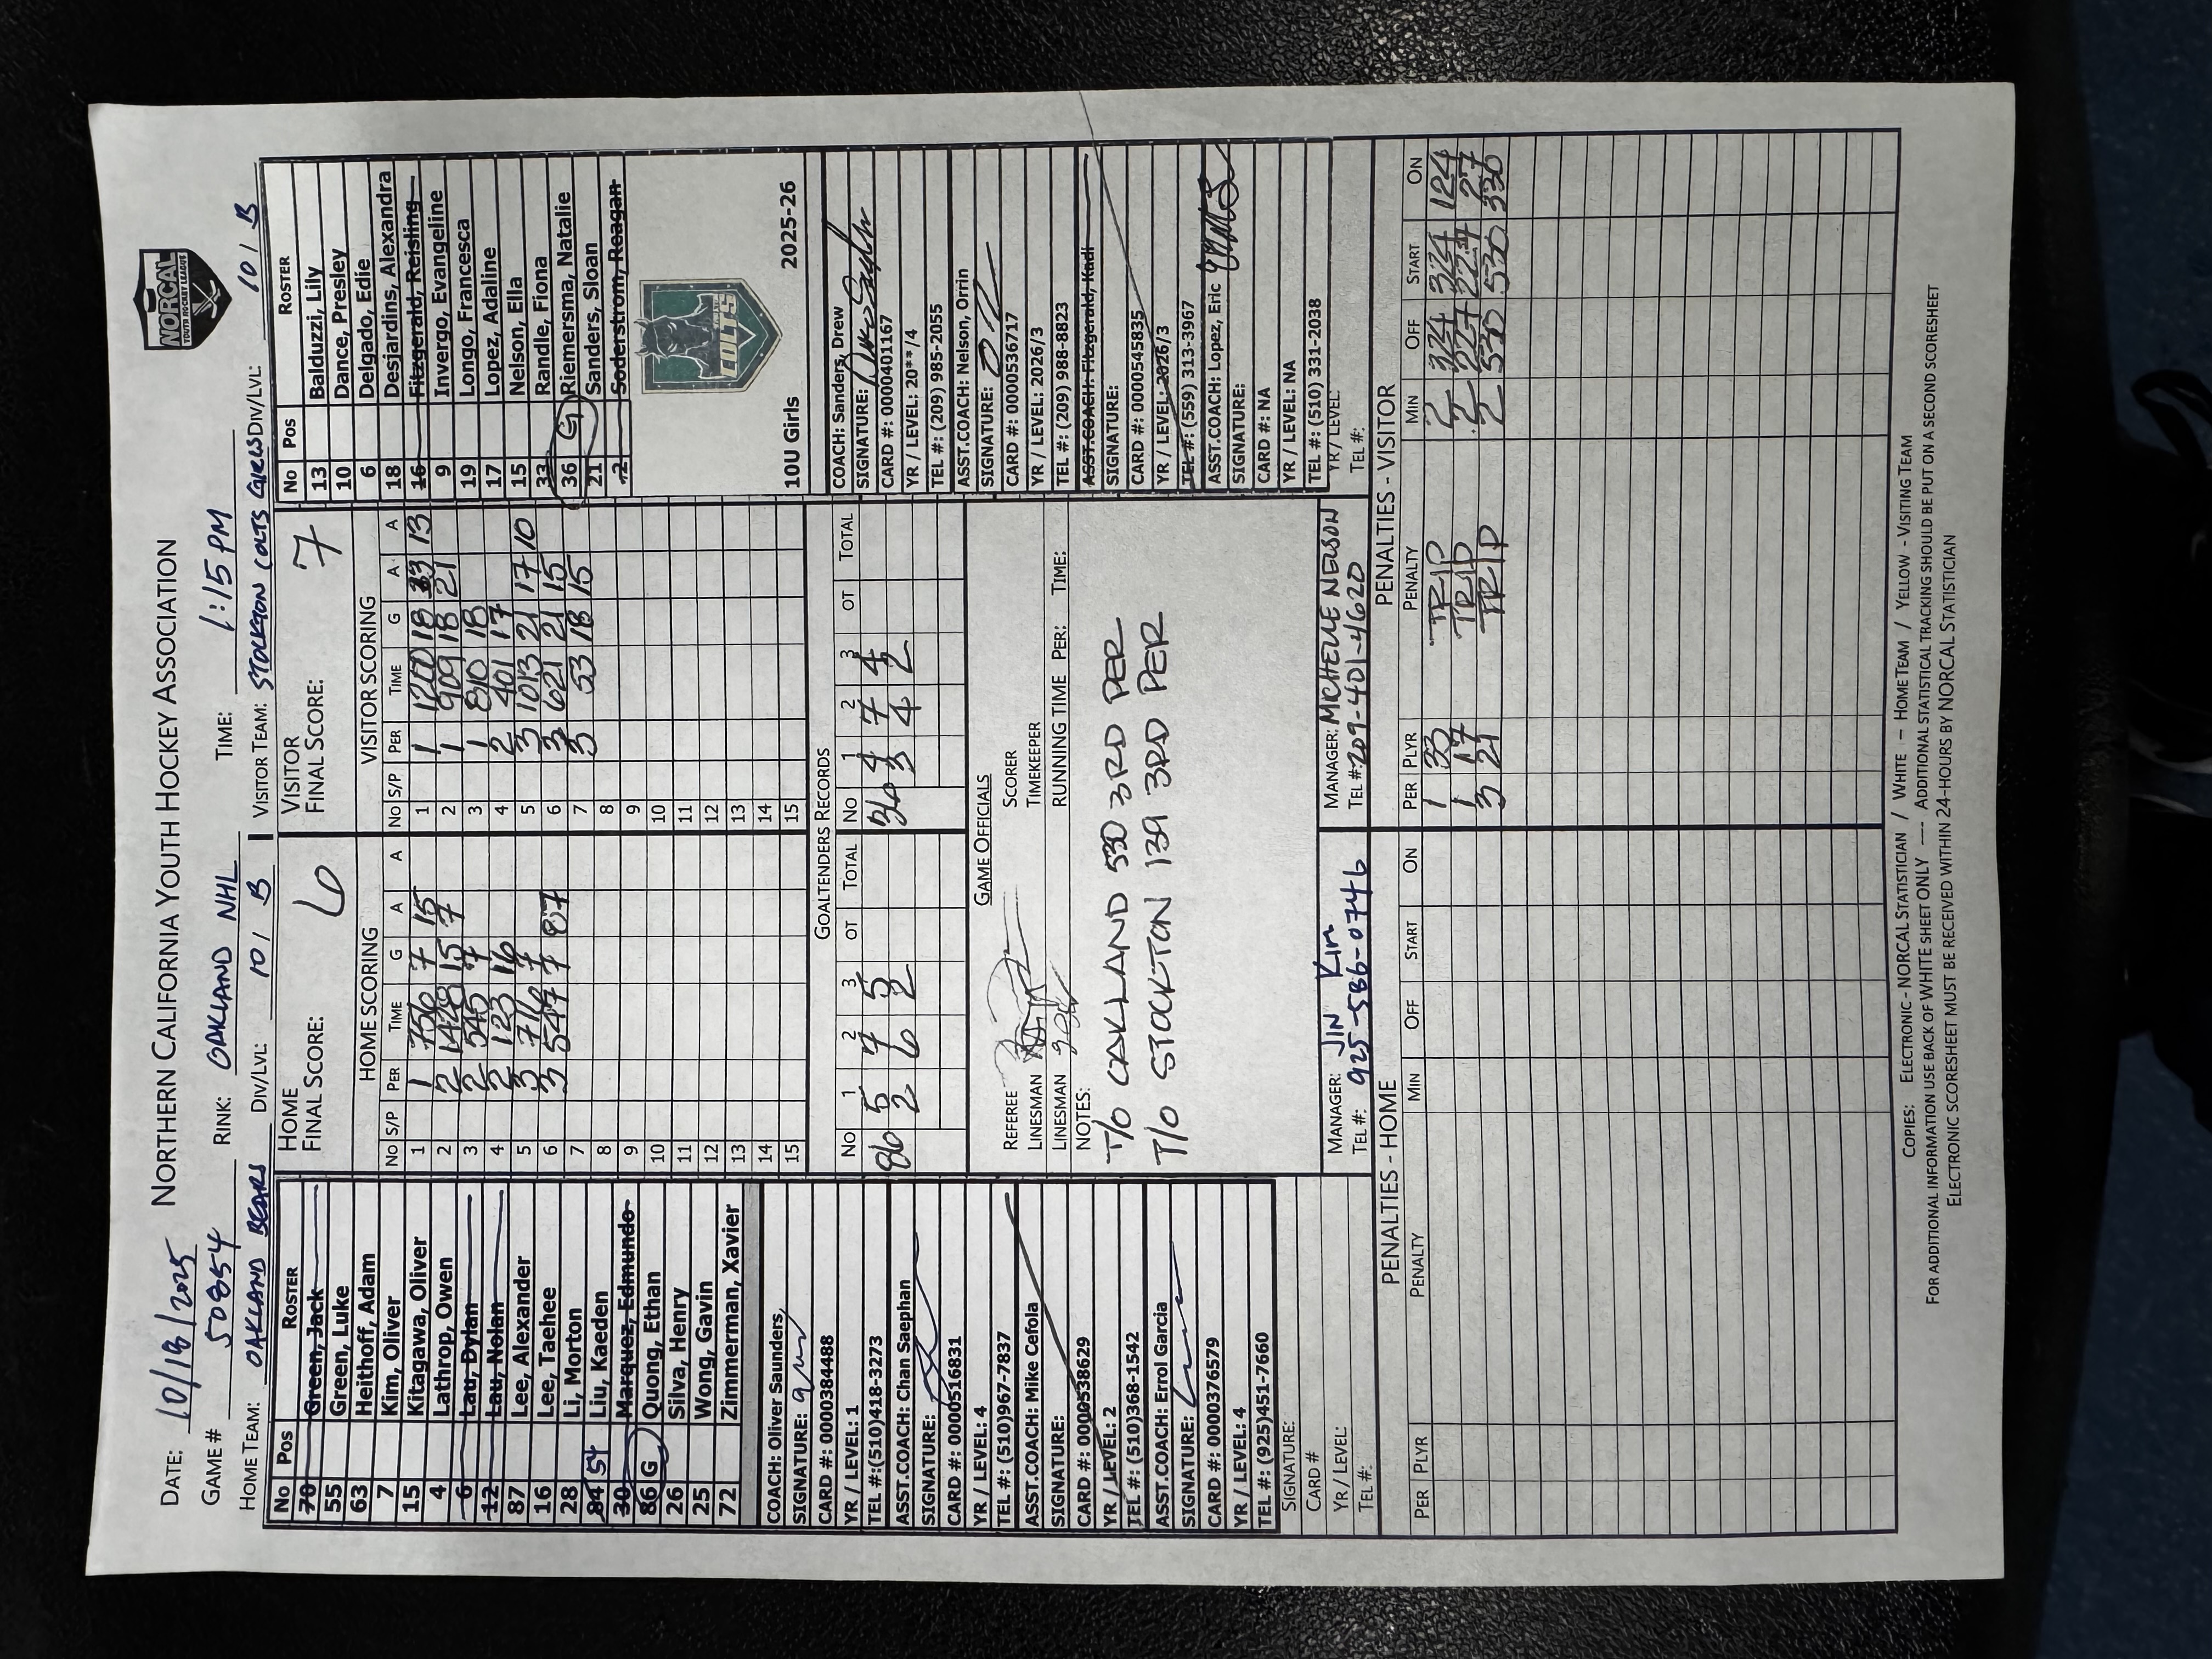 DATE: 10/18/2025 NORTHERN CALIFORNIA YOUTH HOCKEY ASSOCIATION
NORCAL
YOUTH HOCKEY LEAGUE
GAME # 50854 RINK: OAKLAND NHL TIME: 1:15 PM
HOME TEAM: OAKLAND BEARS DIV/LVL: 10 / B VISITOR TEAM: STOCKTON COLTS GIRLS DIV/LVL: 10 / B
No Pos ROSTER
70 Green, Jack
55 Green, Luke
63 Heithoff, Adam
7 Kim, Oliver
15 Kitagawa, Oliver
4 Lathrop, Owen
6 Lau, Dylan
12 Lau, Nolan
87 Lee, Alexander
16 Lee, Taehee
28 Li, Morton
84 54 Liu, Kaeden
30 Marquez, Edmundo
86 G Quong, Ethan
26 Silva, Henry
25 Wong, Gavin
72 Zimmerman, Xavier
COACH: Oliver Saunders
SIGNATURE:
CARD #: 0000384488
YR / LEVEL: 1
TEL #:(510)418-3273
ASST.COACH: Chan Saephan
SIGNATURE:
CARD #: 0000516831
YR / LEVEL: 4
TEL #: (510)967-7837
ASST.COACH: Mike Cefola
SIGNATURE:
CARD #: 0000538629
YR / LEVEL: 2
TEL #: (510)368-1542
ASST.COACH: Errol Garcia
SIGNATURE:
CARD #: 0000376579
YR / LEVEL: 4
TEL #: (925)451-7660
SIGNATURE:
CARD #
YR / LEVEL:
TEL #:
HOME
FINAL SCORE: 6
HOME SCORING
No S/P PER TIME G A A
1 1 756 7 15
2 2 1428 15 7
3 2 545 7
4 2 123 16
5 3 716 7
6 3 547 7 87
7
8
9
10
11
12
13
14
15
VISITOR
FINAL SCORE: 7
VISITOR SCORING
No S/P PER TIME G A A
1 1 1200 18 33 13
2 1 909 18 21
3 1 810 18
4 2 401 17
5 3 1013 21 17 10
6 3 621 21 15
7 3 53 18 15
8
9
10
11
12
13
14
15
GOALTENDERS RECORDS
No 1 2 3 OT TOTAL No 1 2 3 OT TOTAL
86 5 7 5 36 4 7 4
2 6 2 3 4 2
GAME OFFICIALS
REFEREE SCORER
LINESMAN TIMEKEEPER
LINESMAN RUNNING TIME PER: TIME:
NOTES:
T/O OAKLAND 530 3RD PER
T/O STOCKTON 139 3RD PER
MANAGER: JIN KIM
TEL #: 925-586-0746
MANAGER: MICHELLE NELSON
TEL #: 209-401-4620
No Pos ROSTER
13 Balduzzi, Lily
10 Dance, Presley
6 Delgado, Edie
18 Desjardins, Alexandra
16 Fitzgerald, Reisling
9 Invergo, Evangeline
19 Longo, Francesca
17 Lopez, Adaline
15 Nelson, Ella
33 Randle, Fiona
36 G Riemersma, Natalie
21 Sanders, Sloan
12 Soderstrom, Reagan
COLTS
10U Girls 2025-26
COACH: Sanders, Drew
SIGNATURE:
CARD #: 0000401167
YR / LEVEL: 20**/4
TEL #: (209) 985-2055
ASST.COACH: Nelson, Orrin
SIGNATURE:
CARD #: 0000536717
YR / LEVEL: 2026/3
TEL #: (209) 988-8823
ASST.COACH: Fitzgerald, Kadi
SIGNATURE:
CARD #: 0000545835
YR / LEVEL: 2026/3
TEL #: (559) 313-3967
ASST.COACH: Lopez, Eric
SIGNATURE:
CARD #: NA
YR / LEVEL: NA
TEL #: (510) 331-2038
YR / LEVEL:
TEL #:
PENALTIES - HOME
PER PLYR PENALTY MIN OFF START ON
PENALTIES - VISITOR
PER PLYR PENALTY MIN OFF START ON
1 33 TRIP 2 324 324 124
1 17 TRIP 2 227 227 27
3 21 TRIP 2 530 530 330
COPIES: ELECTRONIC - NORCAL STATISTICIAN / WHITE – HOME TEAM / YELLOW - VISITING TEAM
FOR ADDITIONAL INFORMATION USE BACK OF WHITE SHEET ONLY ---- ADDITIONAL STATISTICAL TRACKING SHOULD BE PUT ON A SECOND SCORESHEET
ELECTRONIC SCORESHEET MUST BE RECEIVED WITHIN 24-HOURS BY NORCAL STATISTICIAN